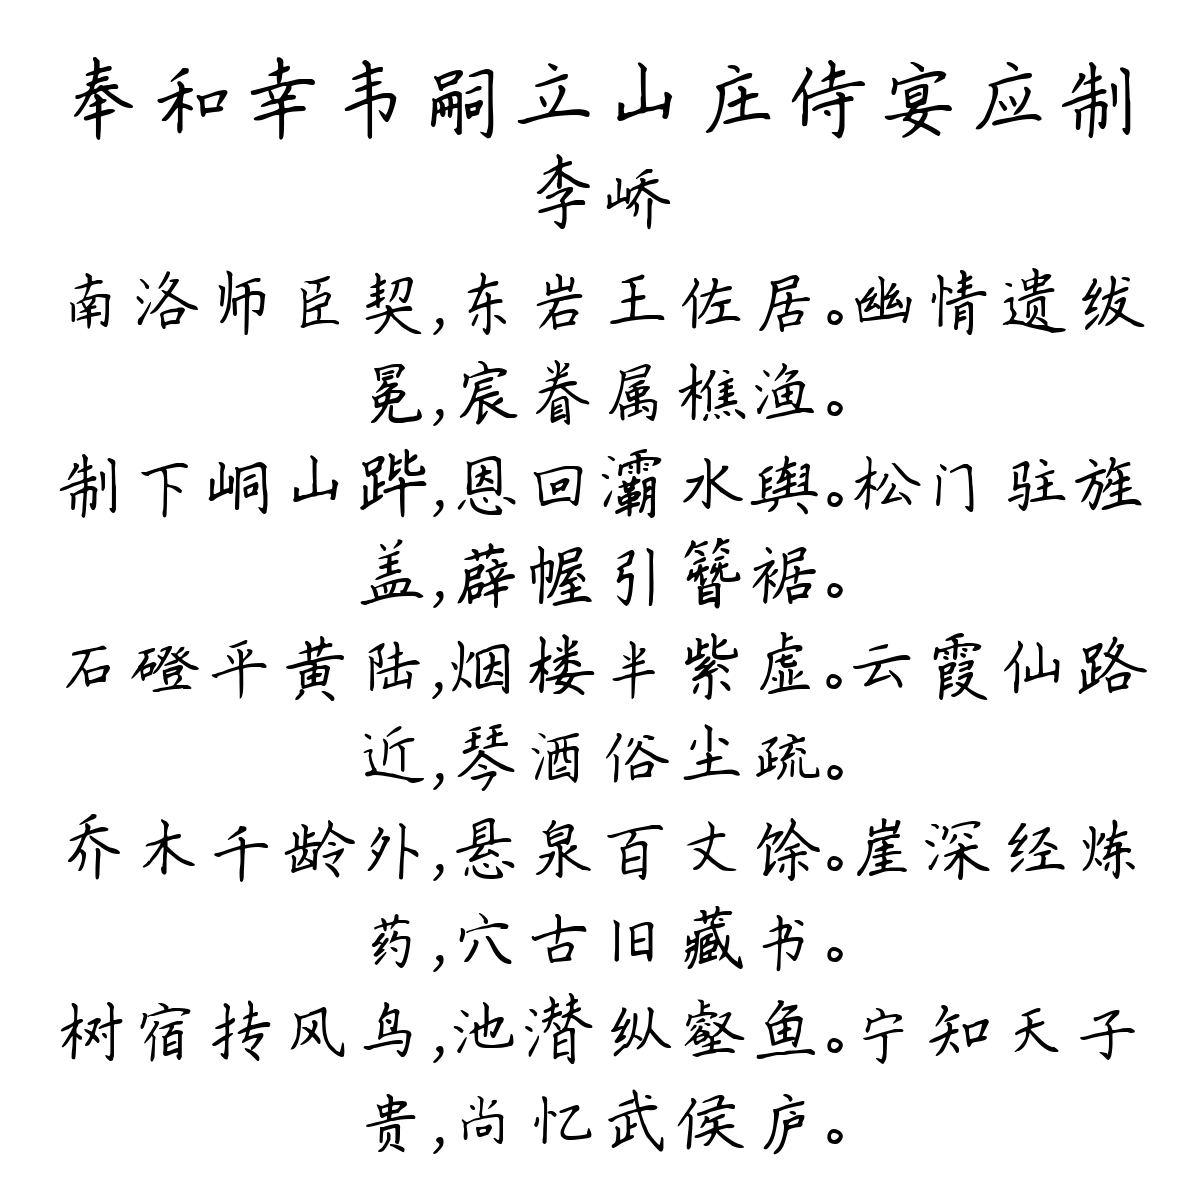 奉和幸韦嗣立山庄侍宴应制
李峤
南洛师臣契,东岩王佐居。幽情遗绂
冕,宸眷属樵渔。
制下峒山跸,恩回灞水舆。松门驻旌
盖,薜幄引簪裾。
石磴平黄陆,烟楼半紫虚。云霞仙路
近,琴酒俗尘疏。
乔木千龄外,悬泉百丈馀。崖深经炼
药,穴古旧藏书。
树宿抟风鸟,池潜纵壑鱼。宁知天子
贵,尚忆武侯庐。